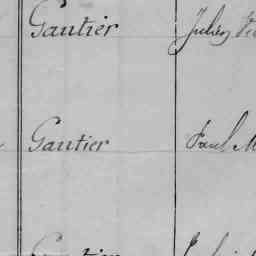 Gautier Julien
Gautier Paul M